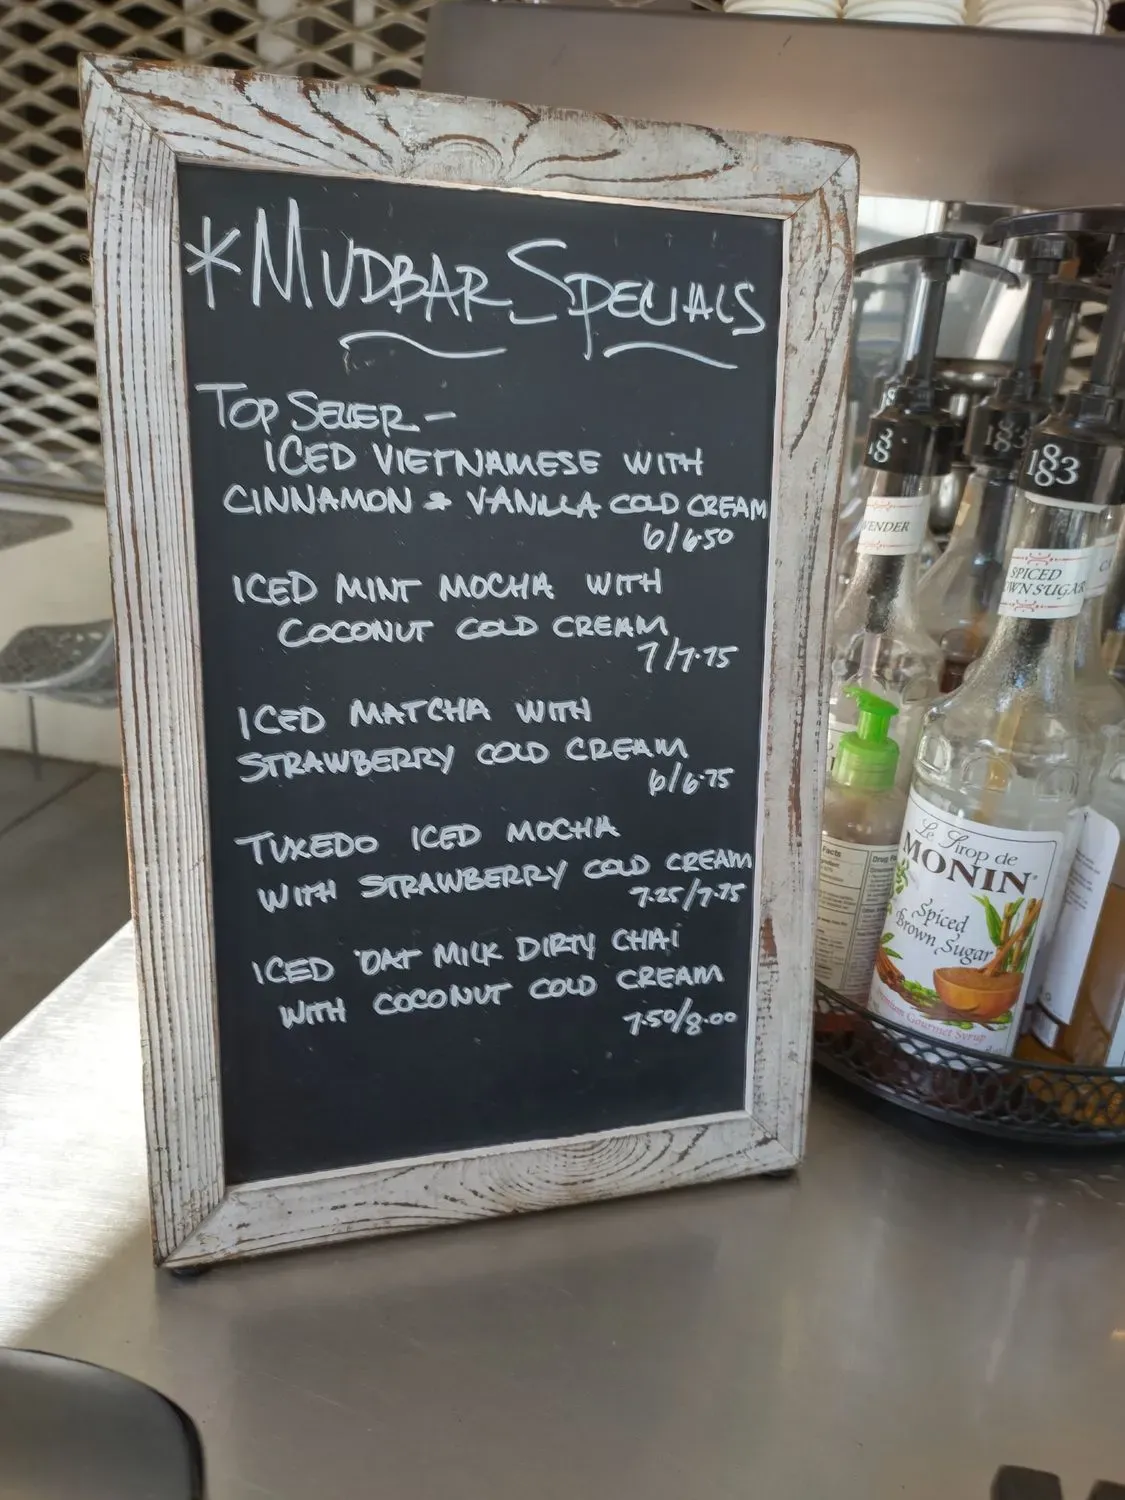 *MUDBAR SPECIALS
TOP SELLER -
ICED VIETNAMESE WITH
CINNAMON & VANILLA COLD CREAM
6/6.50
ICED MINT MOCHA WITH
COCONUT COLD CREAM
7/7.75
ICED MATCHA WITH
STRAWBERRY COLD CREAM
6/6.75
TUXEDO ICED MOCHA
WITH STRAWBERRY COLD CREAM
7.25/7.75
ICED OAT MILK DIRTY CHAI
WITH COCONUT COLD CREAM
7.50/8.00
183
183
VENDER
SPICED
WN SUGAR
Le Sirop de
MONIN
Spiced
Brown Sugar
Gourmet Syrup
Facts
Drug